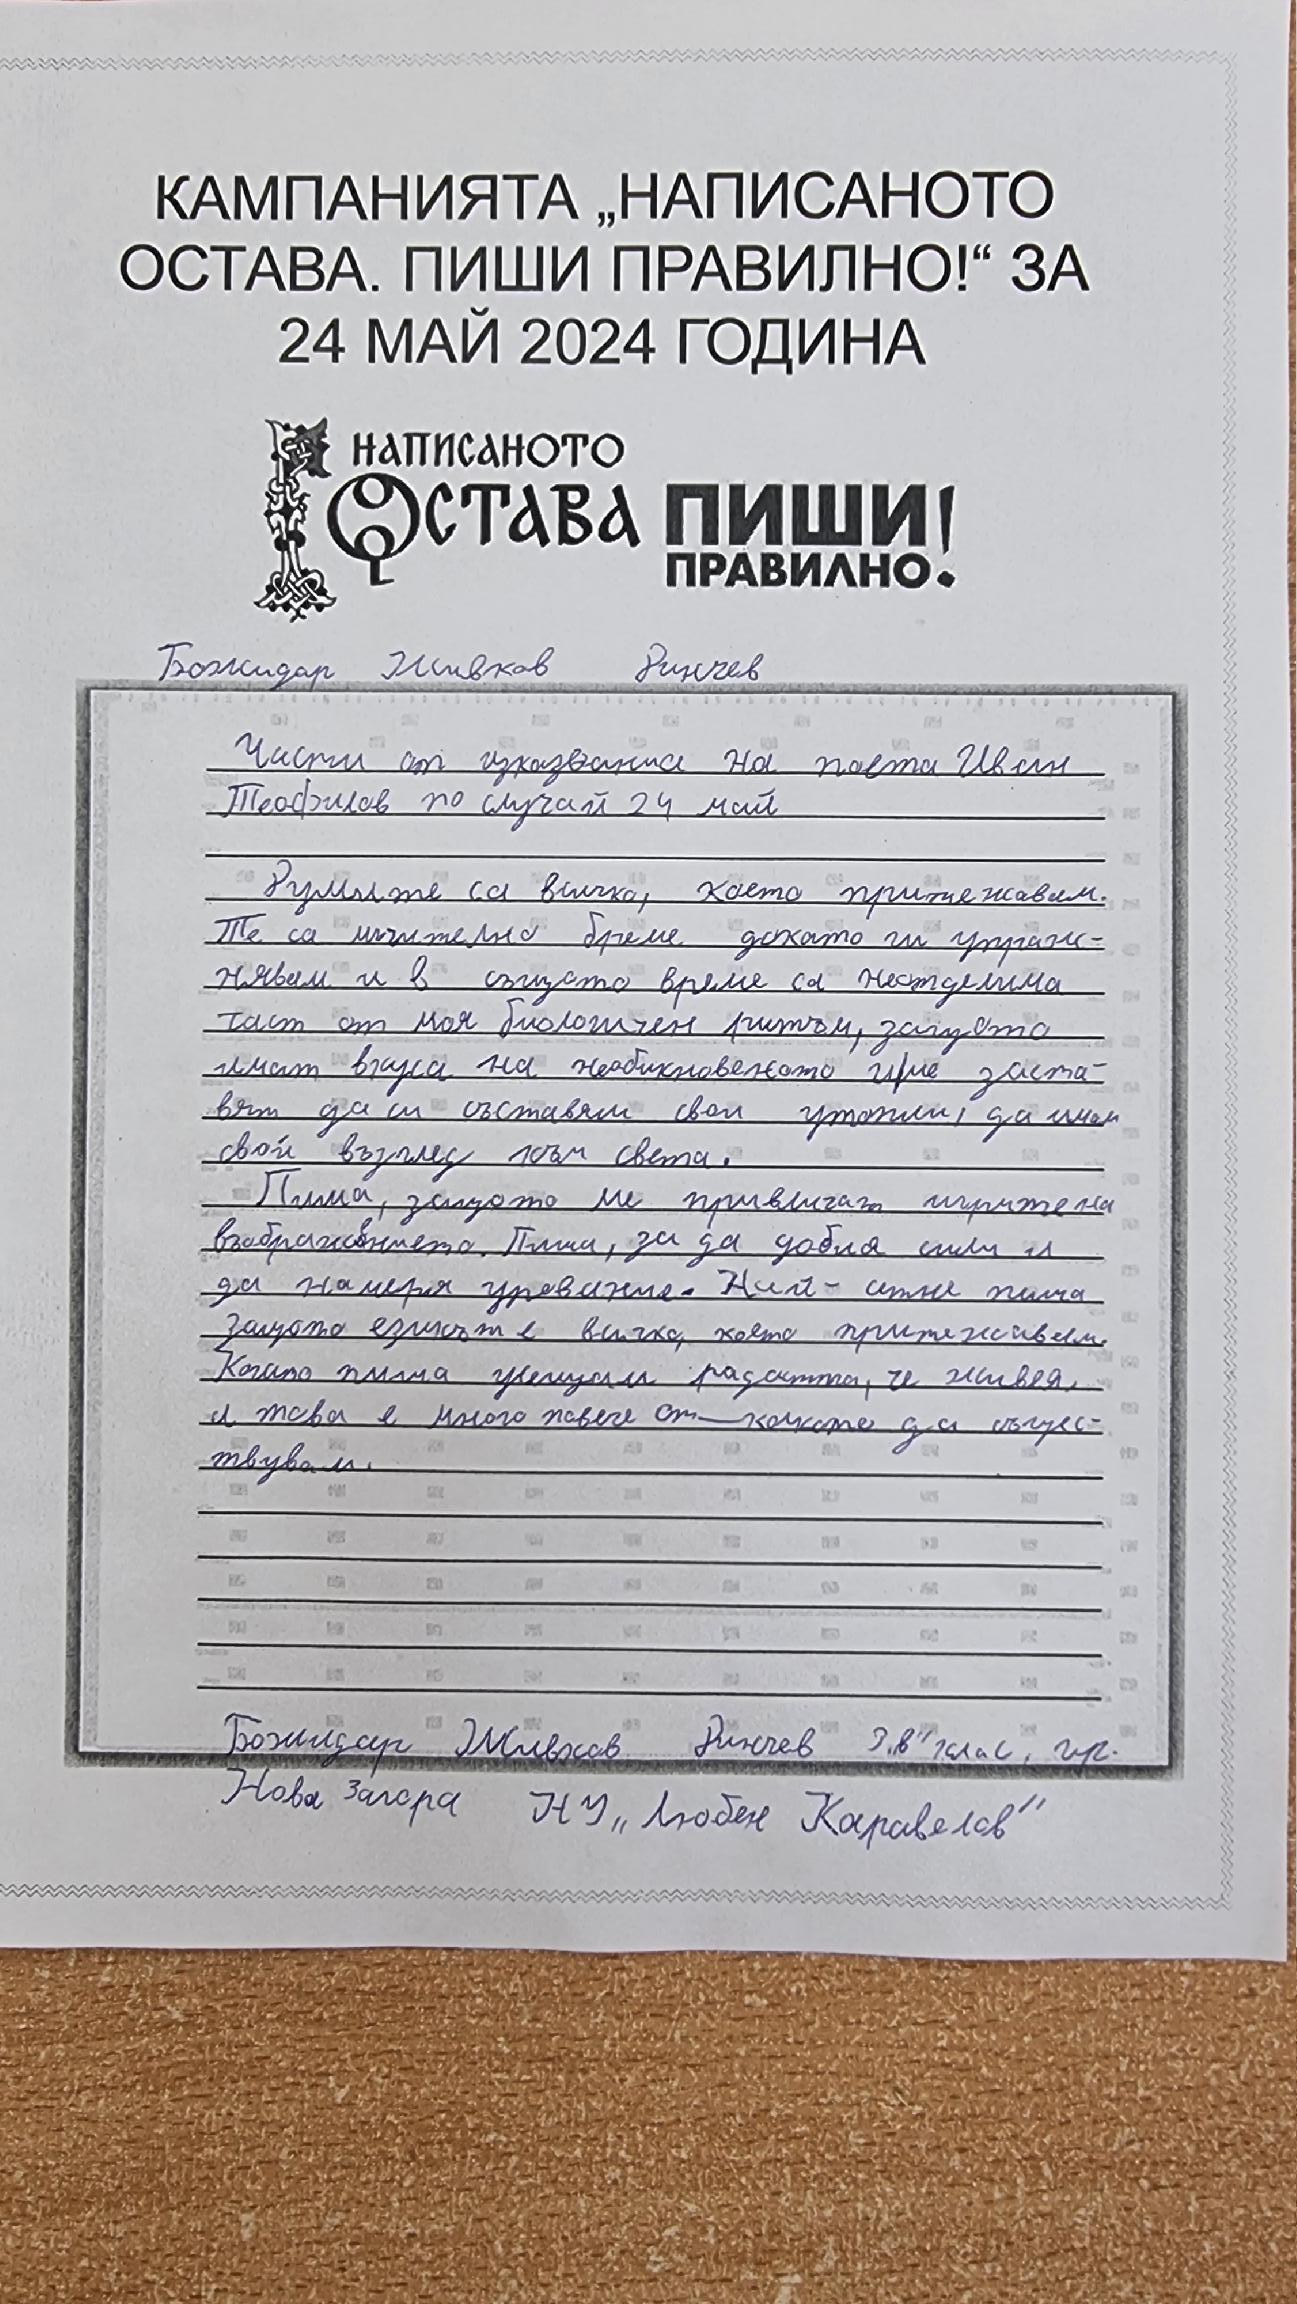 КАМПАНИЯТА „НАПИСАНОТО
ОСТАВА. ПИШИ ПРАВИЛНО!“ ЗА
24 МАЙ 2024 ГОДИНА
НАПИСАНОТО
ОСТАВА ПИШИ
ПРАВИЛНО!
Божидар Живков Динчев
Части от изказвания на поета Иван
Теофилов по случай 24 май
Думите са всичко, което притежавам.
Те са мъчително бреме докато ги упраж-
нявам и в същото време са неотделима
част от моя биологичен ритъм, защото
имат вкуса на необикновеното и ме заста-
вят да си съставям свои утопии, да имам
свой възглед към света.
Пиша, защото ме привличат игрите на
въображението. Пиша, за да добия сили и
да намеря уравение. Най-сетне пиша
защото езикът е всичко, което притежавам.
Когато пиша усещам радостта, че живея,
и това е много повече от колкото да същес-
твувам.
Божидар Живков Динчев 3 „в“ клас, гр.
Нова Загора НУ „Любен Каравелов“